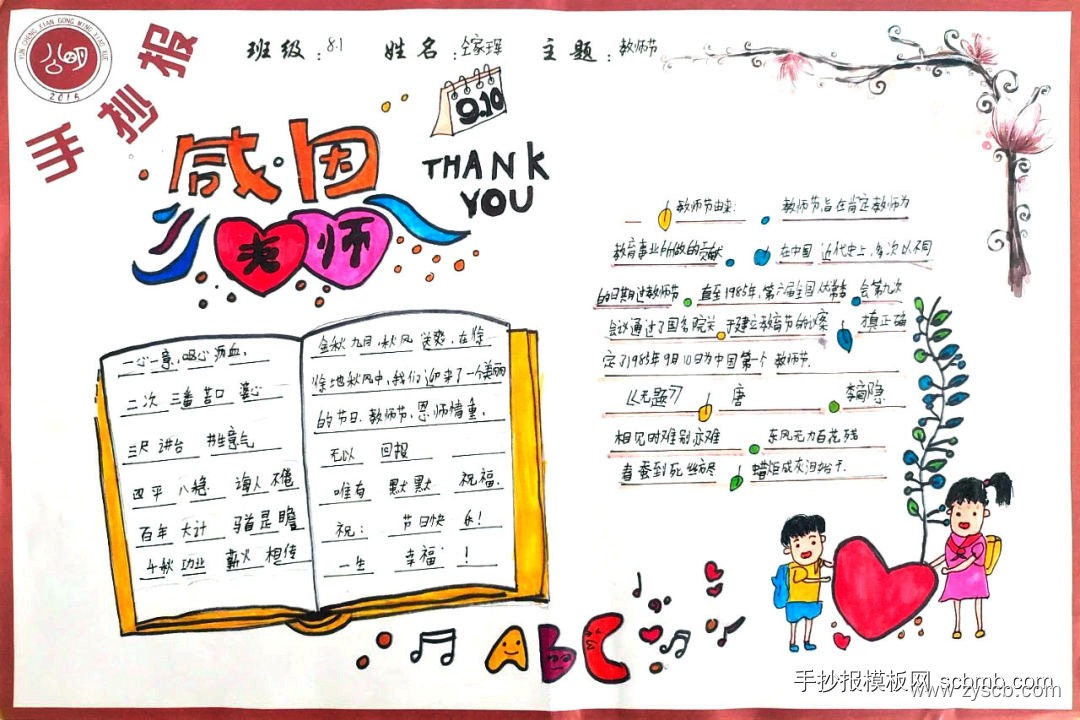 YUN CHENG XIAN GONG MING XIAO XUE
2015
手抄报
班级：8.1 姓名：仝家珲 主题：教师节
9.10
感·恩
老师
THANK
YOU
一心一意，呕心沥血，
二次 三番 苦口 婆心
三尺 讲台 书生意气
四平 八稳 诲人 不倦
百年 大计 马首是瞻
千秋 功业 薪火 相传
金秋九月，秋风送爽，在徐
徐地秋风中，我们迎来了一个美丽
的节日，教师节，恩师情重，
无以 回报
唯有 默默 祝福，
祝： 节日快乐！
一生 幸福！
教师节由来： 教师节旨在肯定教师为
教育事业所做的贡献 在中国 近代史上，多次以不同
的日期过教师节 直至1985年，第六届全国人大常委 会第九次
会议通过了国务院关 于建立教育节的议案 真正确
定了1985年9月10日为中国第一个 教师节．
《无题》 唐 李商隐
相见时难别亦难 东风无力百花残
春蚕到死丝方尽 蜡炬成灰泪始干．
ABC
手抄报模板网 scbmb.com
www.zyscb.com